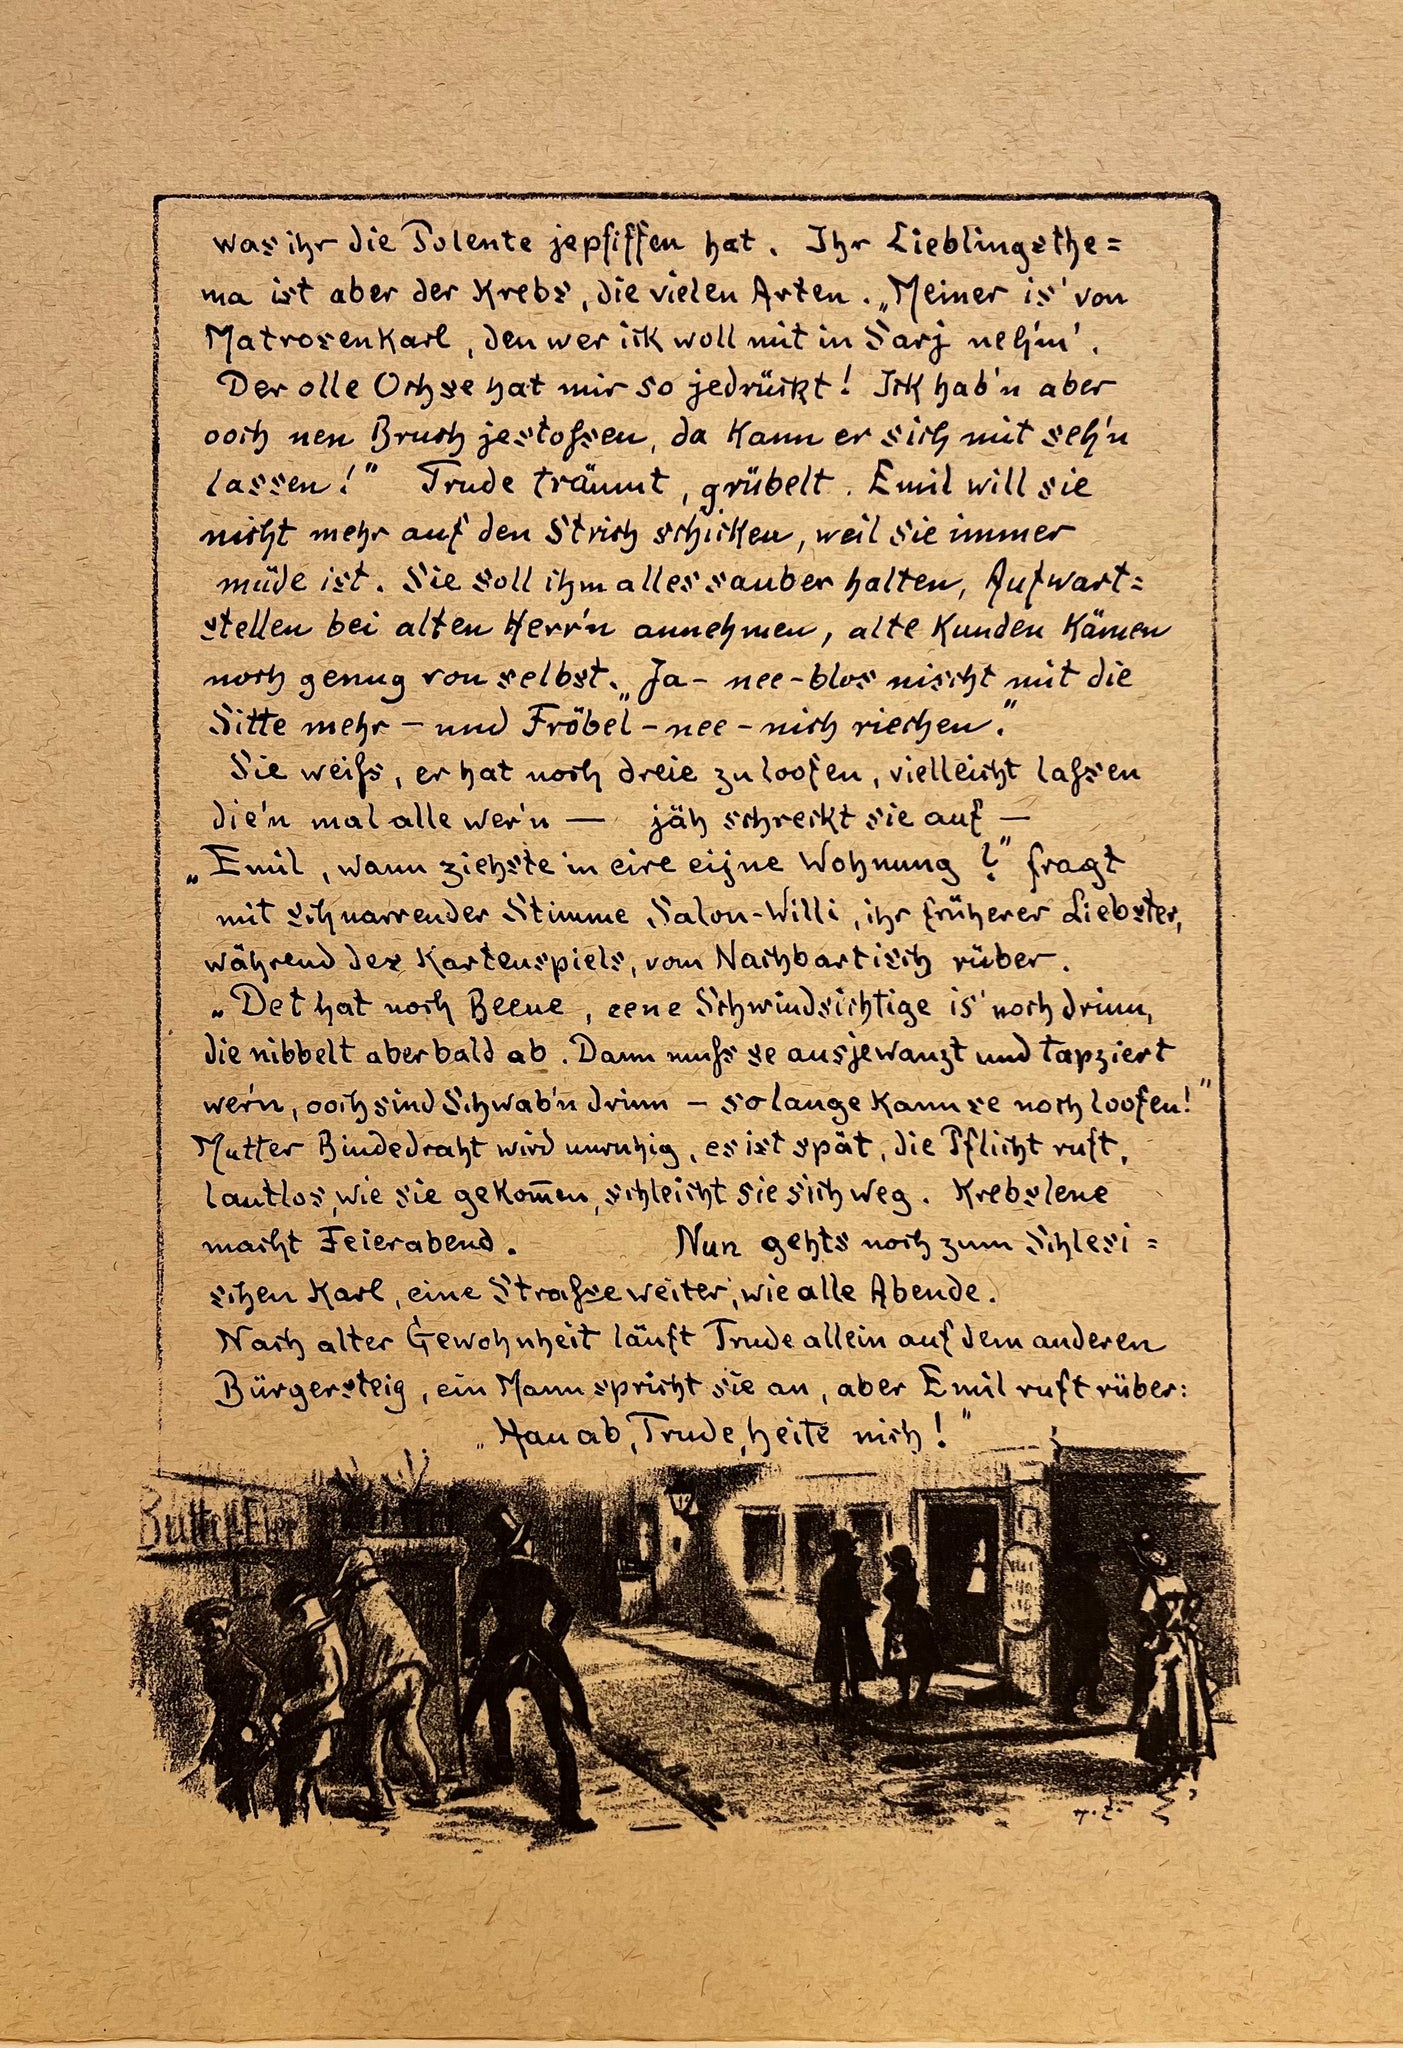 was ihr die Polente jepfiffen hat. Ihr Lieblingsthe=
ma ist aber der Krebs, die vielen Arten. „Meiner is' von
Matrosenkarl, den wer ick woll mit in Sarj nehm'.
Der olle Ochse hat mir so jedrückt! Ick hab'n aber
ooch nen Bruch jestoßen, da kann er sich mit seh'n
lassen!" Trude träumt, grübelt. Emil will sie
nicht mehr auf den Strich schicken, weil sie immer
müde ist. Sie soll ihm alles sauber halten, Aufwart=
stellen bei alten Herr'n annehmen, alte Kunden kämen
noch genug von selbst. „Ja - nee - blos nischt mit die
Sitte mehr — und Fröbel - nee - nich riechen."
Sie weiß, er hat noch dreie zu loofen, vielleicht laßen
die'n mal alle wer'n — jäh schreckt sie auf —
„Emil, wann ziehste in eire eijne Wohnung?" fragt
mit schnarrender Stimme Salon-Willi, ihr früherer Liebster,
während des Kartenspiels, vom Nachbartisch rüber.
„Det hat noch Beene, eene Schwindsichtige is' noch drinn,
die nibbelt aber bald ab. Dann muß se ausjewanzt und tapziert
wer'n, ooch sind Schwab'n drinn — so lange kann se noch loofen!"
Mutter Bindedraht wird unruhig, es ist spät, die Pflicht ruft,
lautlos, wie sie gekom̅en, schleicht sie sich weg. Krebslene
macht Feierabend. Nun gehts noch zum Schlesi=
schen Karl, eine Straße weiter, wie alle Abende.
Nach alter Gewohnheit läuft Trude allein auf dem anderen
Bürgersteig, ein Mann spricht sie an, aber Emil ruft rüber:
„Hau ab, Trude, heite nich!"
Butter Eier
12